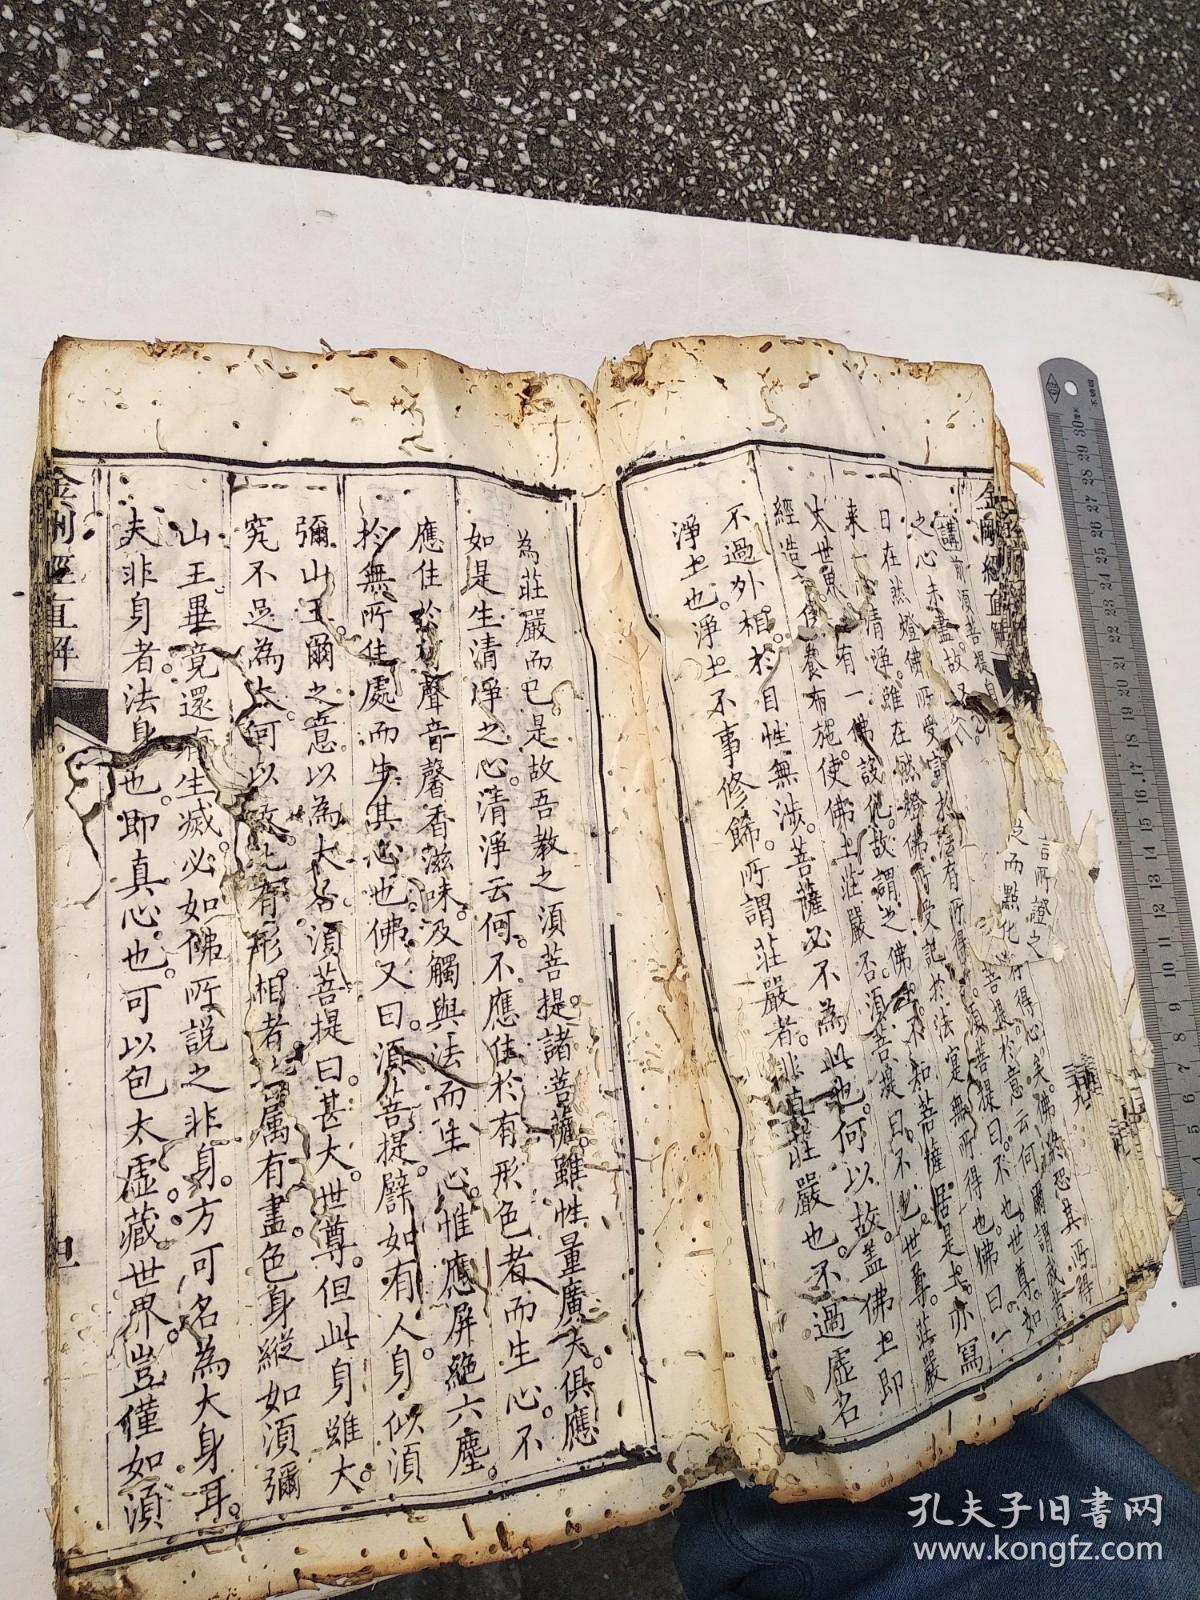 金剛經直解
講前須菩提
之心未盡故又
日在然燈佛所受記於法有所得
來清淨雖在然燈佛所受記於法寔無所得也佛曰
大世界有一佛設化故謂之佛土不知菩薩居是土亦寫
經造
供養布施使佛土莊嚴否須菩提曰不也世尊莊嚴
佛土即
不過外相於自性無涉菩薩必不為此也何以故蓋
淨土也淨土不事修餙所謂莊嚴者非真莊嚴也不過虛名
言所證之
之而點化
得心矣佛
恐其所得
菩提於意云何爾謂我昔
須菩提曰不也世尊如
為莊嚴而已是故吾教之須菩提諸菩薩雖性量廣大俱應
如是生清淨之心清淨云何不應住於有形色者而生心不
應住於聲音馨香滋味及觸與法而生心惟應屏絶六塵
於無所住處而生其心也佛又曰須菩提譬如有人身似須
彌山王爾之意以為大否須菩提曰甚大世尊但此身雖大
究不足為大何以故凡有形相者皆属有盡色身縱如須彌
山王畢竟還有生滅必如佛所說之非身方可名為大身耳
夫非身者法身也即真心也可以包太虛藏世界豈僅如須
金剛經直解
孔夫子旧書网
www.kongfz.com